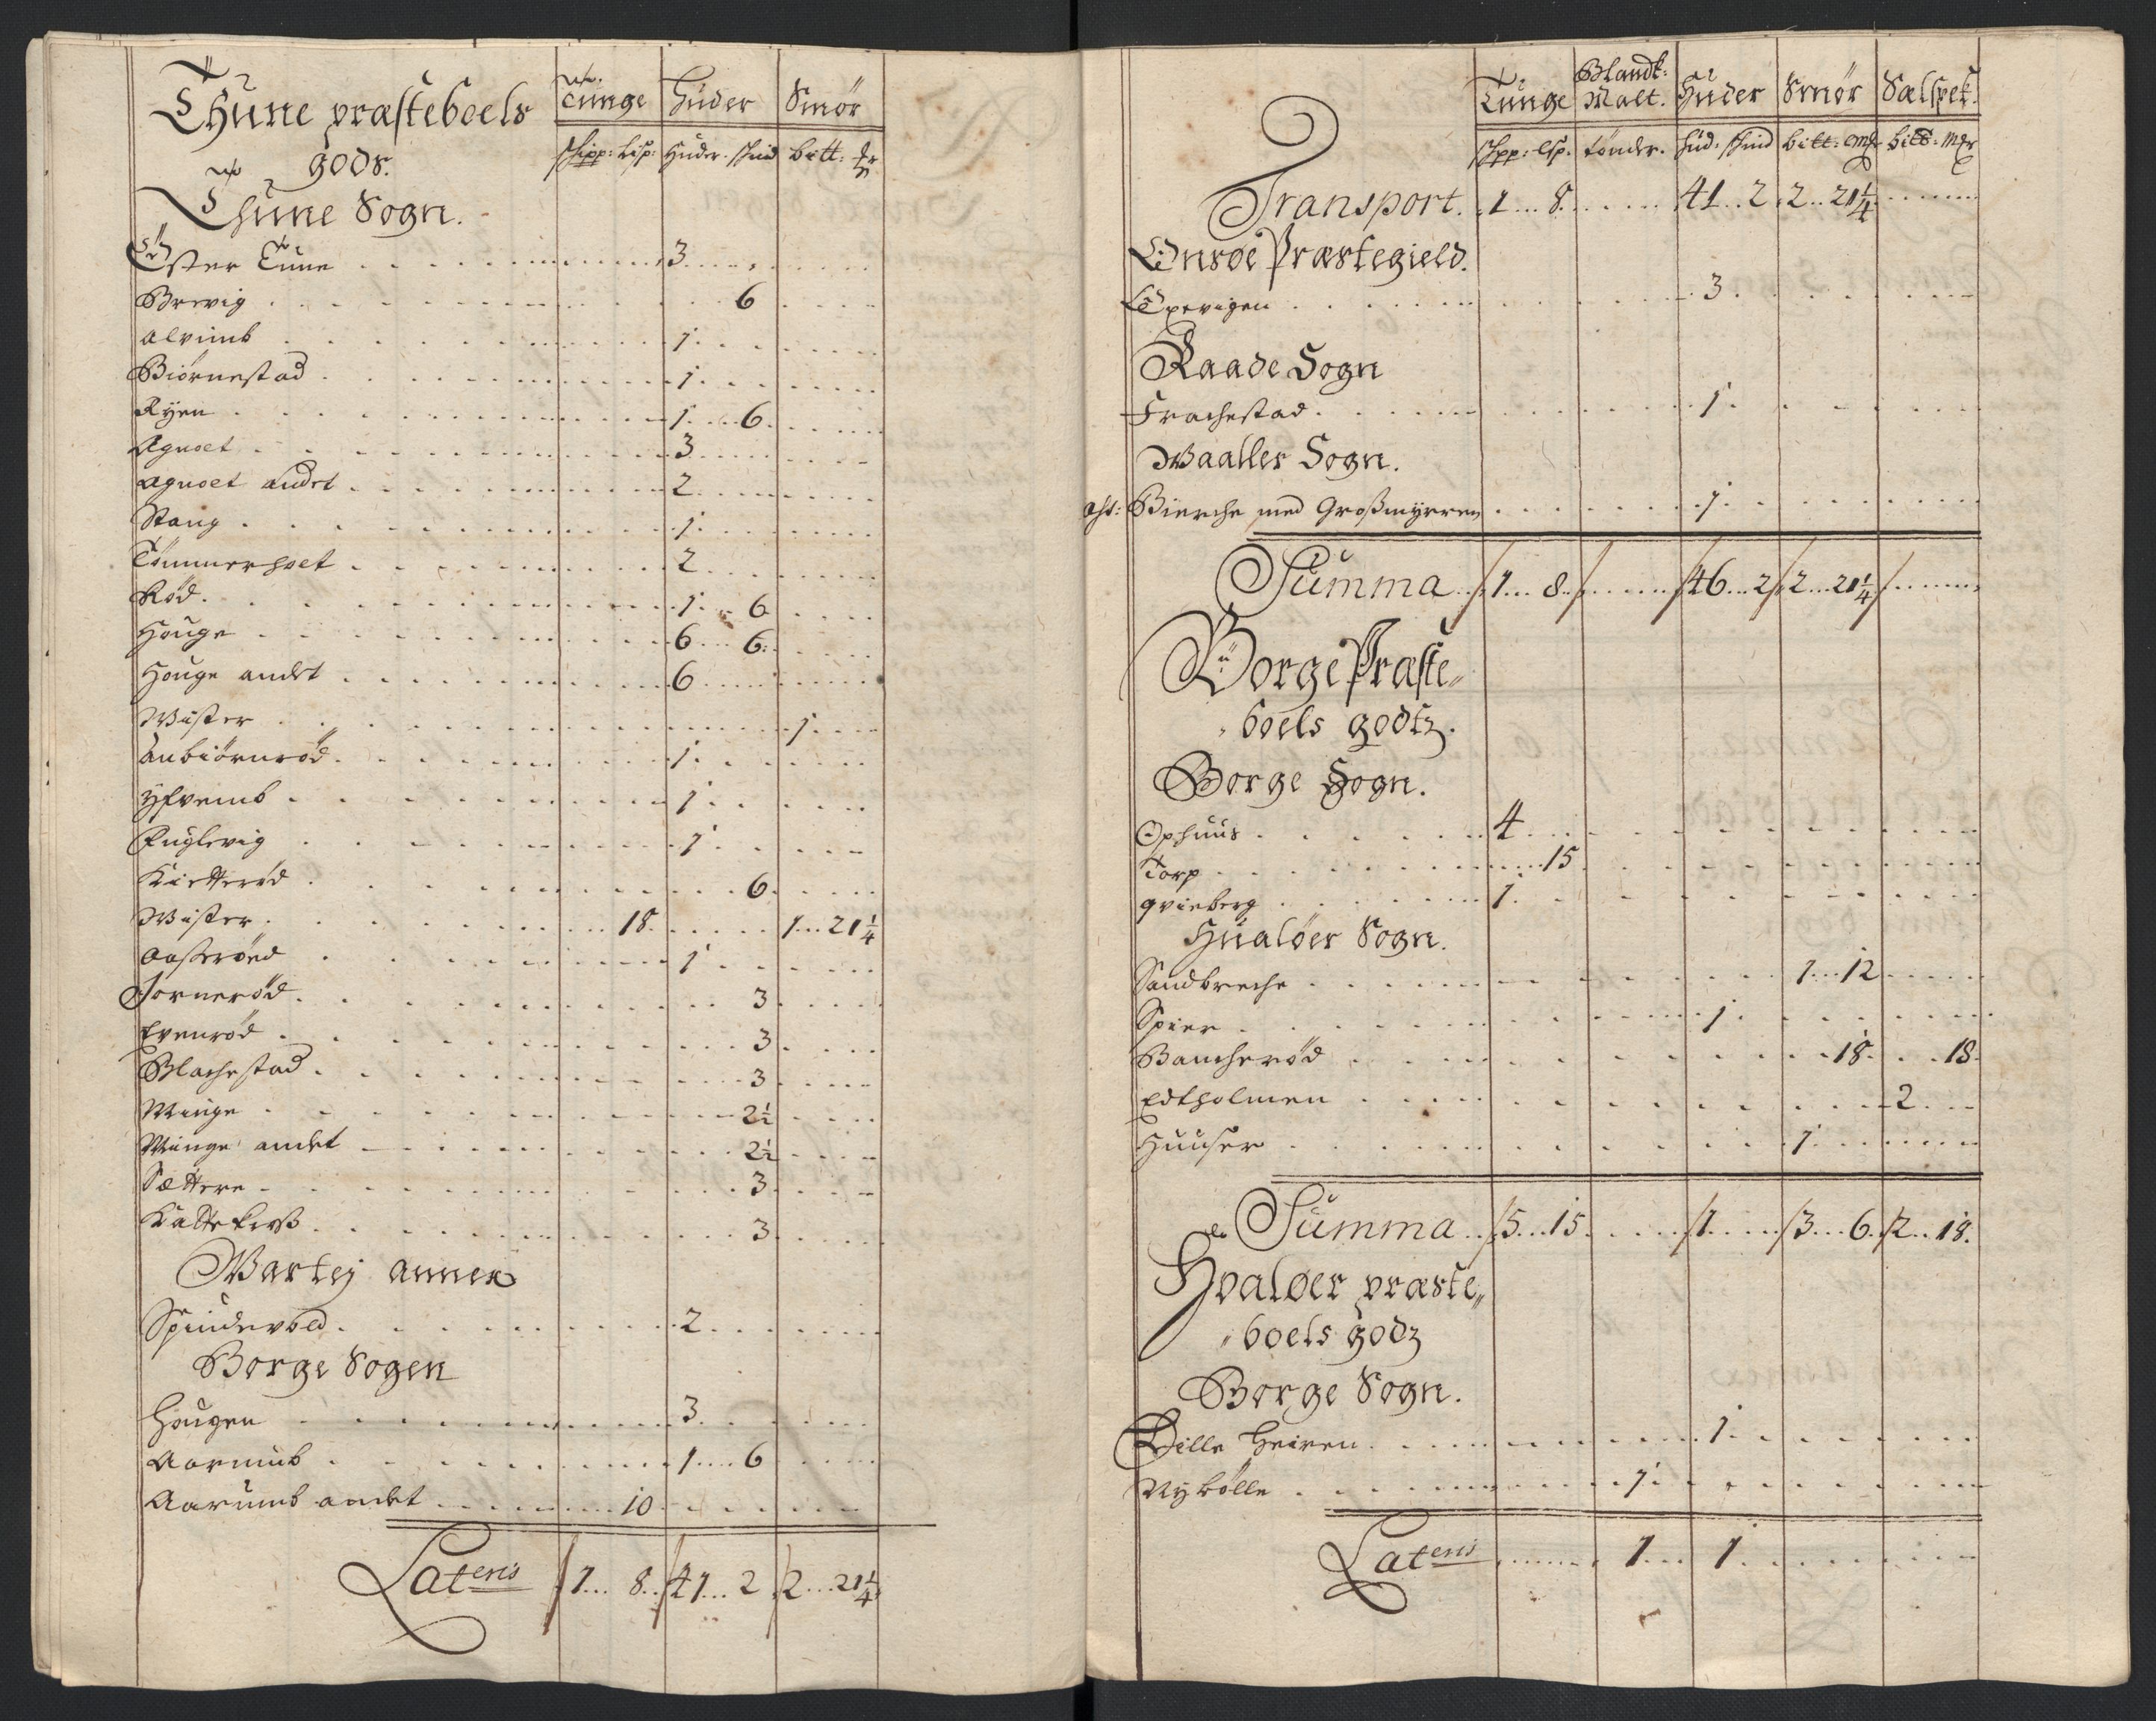 Thune præsteboels
gods.
Tunge Huder Smør
skipp: Lisp: Huder. skind bitt: mr
Thune Sogn.
Øster Tune . . . 3
Brevig . . . 6
Alvimb . . . 1
Biørnestad . . . 1
Ryen . . . 1 . . 6
Agnoet . . . 3
Agnoet andet . . . 2
Stang . . . 1
Tømmerholt . . . 2
Rød . . . 1 . . 6
Houge . . . 6 . . 6
Houge andet . . . 6
Wister . . . 1
Anbiørnrød . . . 1
Yfvemb . . . 1
Fuglevig . . . 1
Kietterød . . . 6
Wister . . . 18 . . . 1 . . 21 1/4
Aasserøed . . . 1
Jornerød . . . 3
Evenrød . . . 3
Blachestad . . . 3
Minge . . . 2 1/2
Minge andet . . . 2 1/2
Sættere . . . 3
. . . 3
Wartej annex
Spindevold . . . 2
Borge Sogen
Hougen . . . 3
Aarumb . . . 1 . . 6
Aarumb andet . . . 10
Lateris 1 . . 8 . . 41 . . 2 . . 2 . . 21 1/4
Tunge Blandk: Malt. Huder Smør Sælspek.
Skpp: Lsp. tønder. Hud: skind bitt: mgr bitt: mgr
Transport. 1 . . 8 . . . 41 . . 2 . . 2 . . 21 1/4
Onsøe Præstegield.
Expevigen . . . 3
Raade Sogn
Frachestad . . . 1
Waaller Sogn.
Bierche med Grossmyrren . . . 1
Summa 1 . . 8 . . . 46 . . 2 . . 2 . . 21 1/4
Borge Præste„
„boels godtz.
Borge Sogn.
Ophuus . . . 4
Torp . . . 15
qvieberg . . . 1
Hualøer Sogn.
Sandbreche . . . 1 . . 12
Spier . . . 1
Baucherød . . . 18 . . 18
Edtholmen . . . 2
Huuser . . . 1
Summa 5 . . 15 . . . 1 . . . 3 . . 6 . . 2 . . 18.
Hvaløer præste„
„boels godz
Borge Sogn.
Lille Heiren . . . 1
Nybølle . . . 1
Lateris . . . 1 . . 1